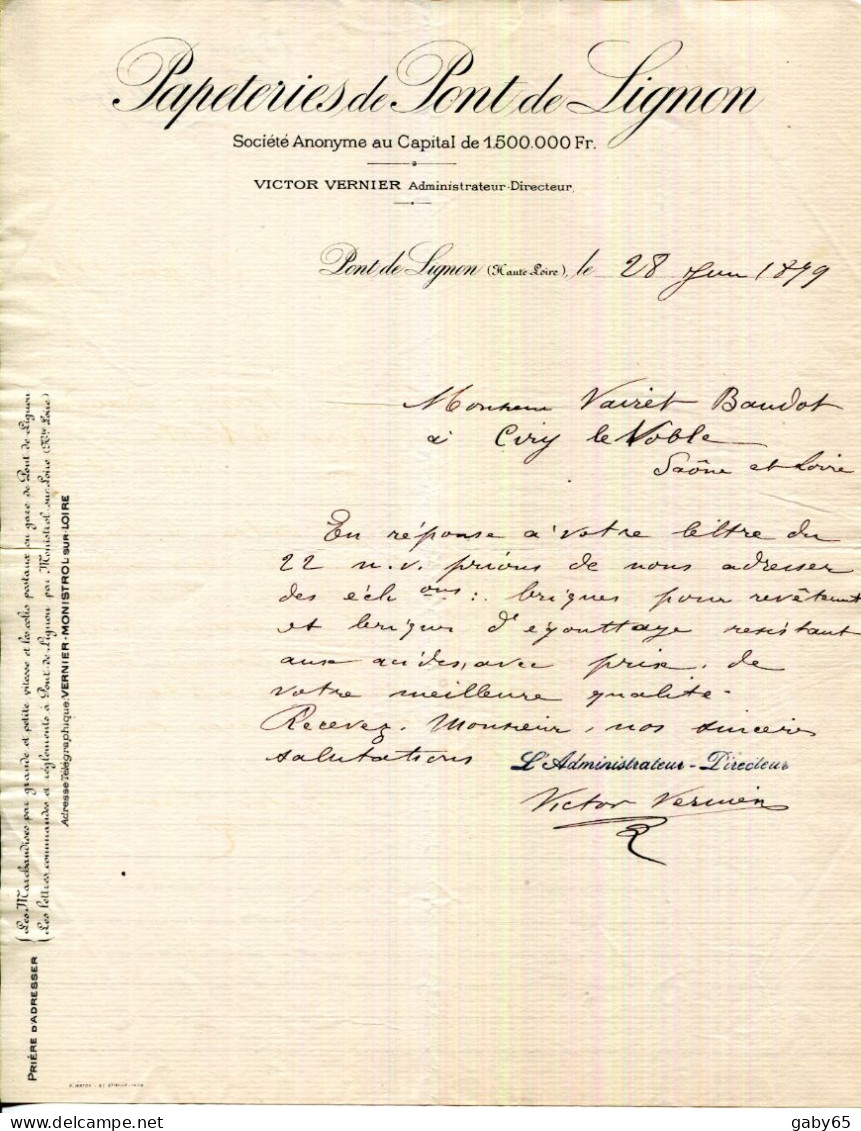 Papeteries de Pont de Lignon
Société Anonyme au Capital de 1.500.000 Fr.
VICTOR VERNIER Administrateur-Directeur.
Pont de Lignon (Haute-Loire), le 28 Juin 1899
Monsieur Vairet Baudot
à Ciry le Noble
Saône et Loire
En réponse à votre lettre du
22 n.v. prions de nous adresser
des éch ons: briques pour revêtement
et briques d'égouttage resistant
aux acides, avec prix, de
votre meilleure qualité -
Recevez, Monsieur, nos sinceres
salutations
L'Administrateur-Directeur
Victor Vernier
PRIÈRE D'ADRESSER
Les Marchandises par grande et petite vitesse et les colis postaux en gare de Pont de Lignon
Les lettres, commandes et règlements à Pont-de-Lignon par Monistrol-sur-Loire (Hte Loire)
Adresse Télégraphique: VERNIER-MONISTROL-SUR-LOIRE
delcampe.net
gaby65